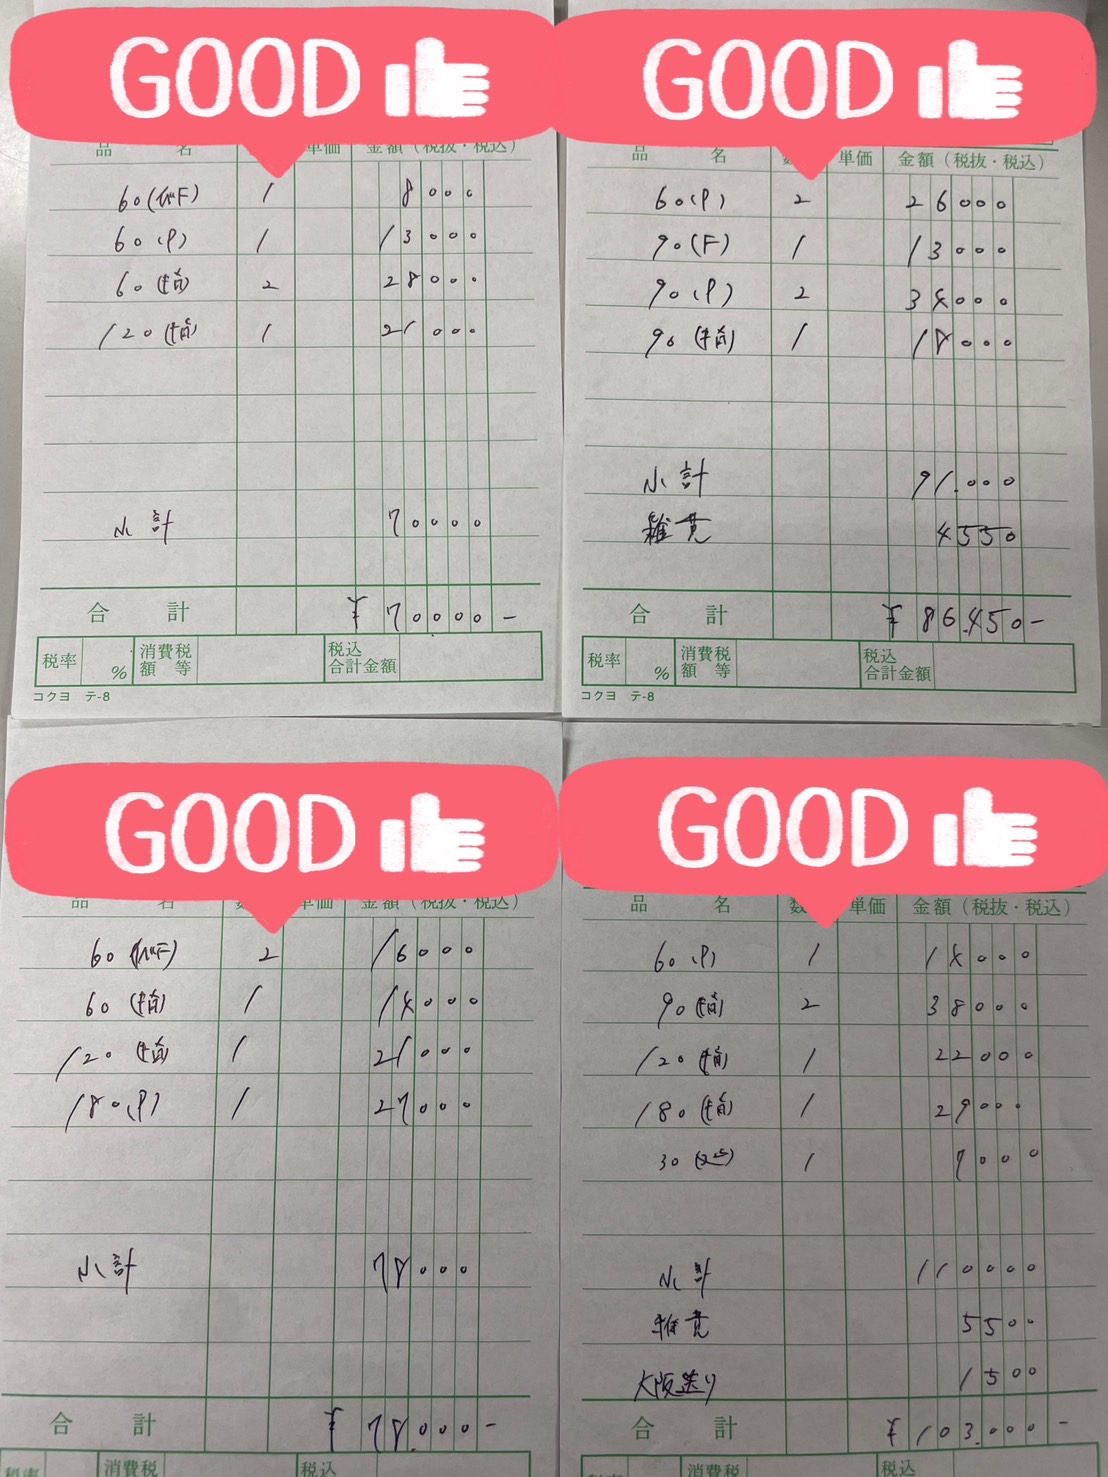 GOOD
品 名 単価 金額(税抜・税込)
60(F) 1 8000
60(P) 1 13000
60(指) 2 28000
120(指) 1 21000
小計 70000
合 計 ¥70000-
税率 % 消費税額等 税込合計金額
コクヨ テ-8
GOOD
品 名 数 単価 金額(税抜・税込)
60(P) 2 26000
90(F) 1 13000
90(P) 2 34000
90(指) 1 18000
小計 91.000
雑費 4550
合 計 ¥86.450-
税率 % 消費税額等 税込合計金額
コクヨ テ-8
GOOD
品 名 数 単価 金額(税抜・税込)
60(F) 2 16000
60(指) 1 14000
120(指) 1 21000
180(P) 1 27000
小計 78000
合 計 ¥78.000-
税率 消費税 税込
GOOD
品 名 数 単価 金額(税抜・税込)
60(P) 1 14000
90(指) 2 38000
120(指) 1 22000
180(指) 1 29000
30 1 7000
小計 110000
雑費 5500
大阪送り 1500
合 計 ¥103.000-
税率 消費税 税込